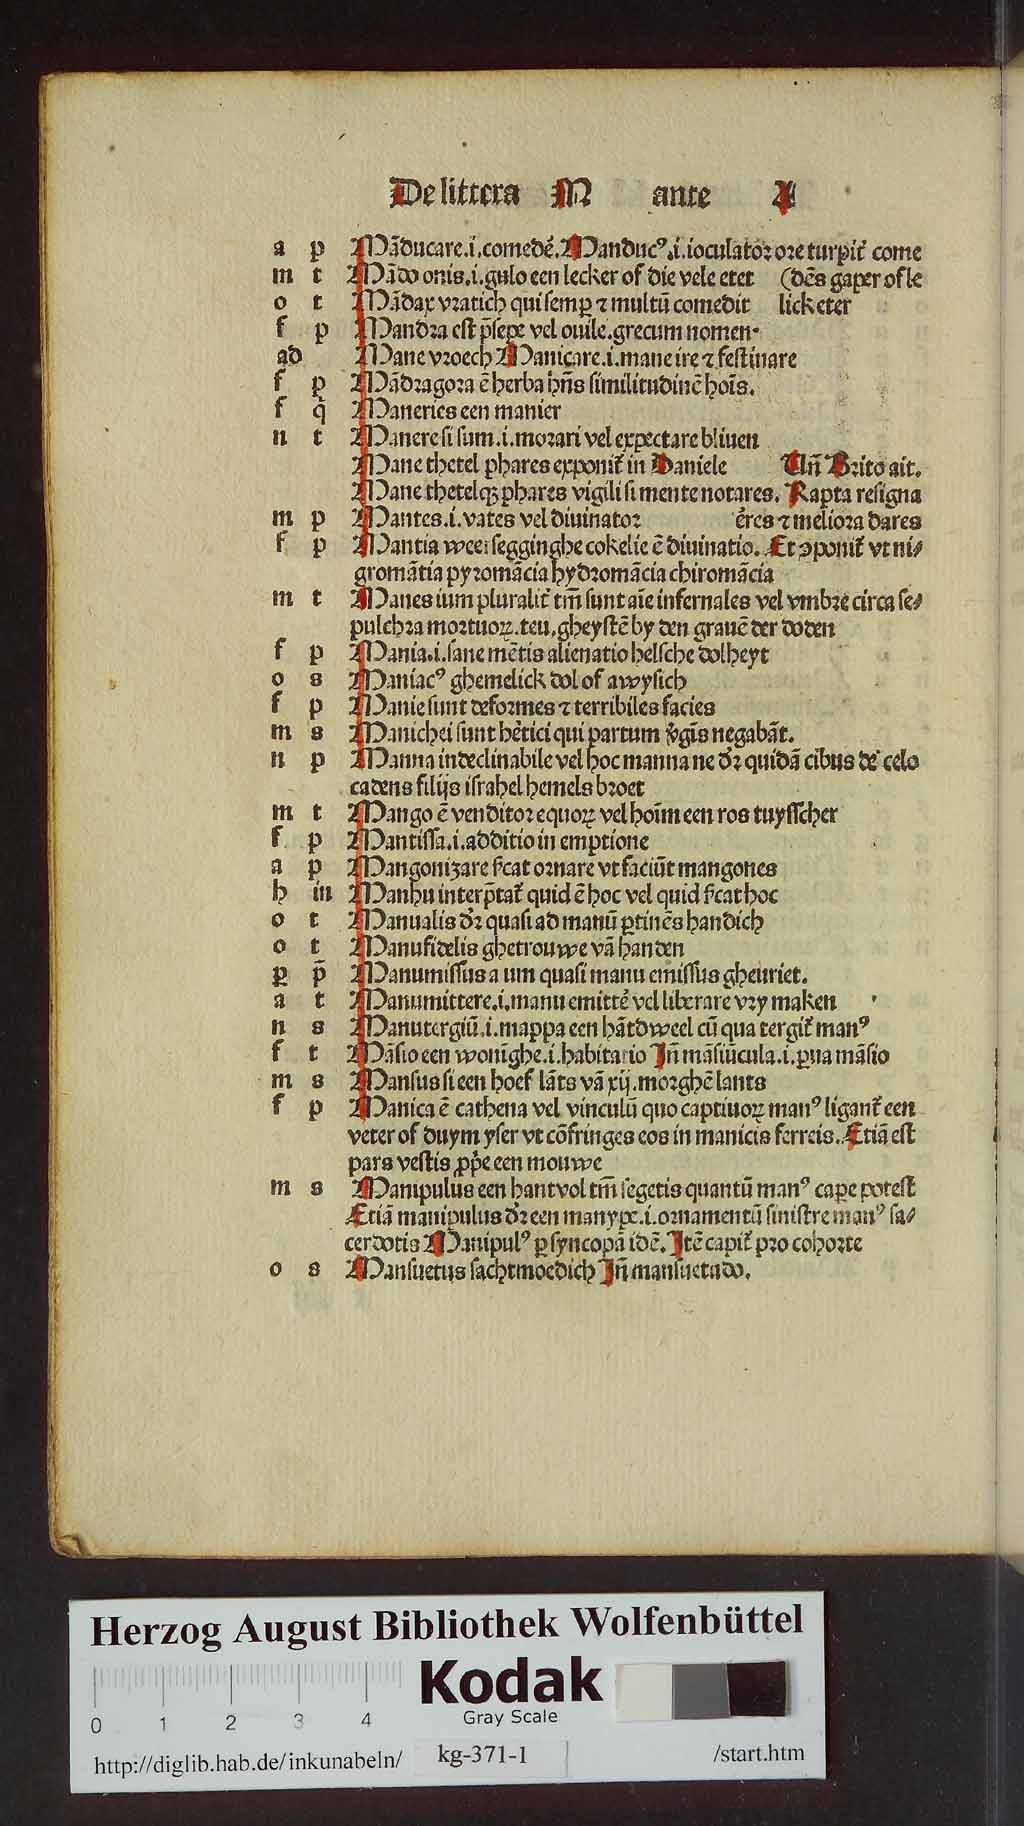 De littera M ante A
a p Mãducare.i.comedẽ. Manducꝰ.i.ioculator ore turpit᷑ come
m t Mãdo onis.i.gulo een lecker of die vele etet (dẽs gaper of le
o t Mãdax vratich qui semꝑ ⁊ multũ comedit licketer
f p Mandra est p̃sepe vel ouile.grecum nomen·
ad Mane vroech Manicare.i.mane ire ⁊ festinare
f ꝑ Mãdragora ẽ herba hñs similitudinẽ hoĩs.
f q̃ Maneries een manier
n t Manere si sum.i.morari vel expectare bliuen
Mane thetel phares exponit᷑ in Daniele Uñ Brito ait.
Mane thetelqꝫ phares vigili si mente notares. Rapta resigna
m p Mantes.i.vates vel diuinator ẽres ⁊ meliora dares
f p Mantia weer segginghe cokelie ẽ diuinatio. Et ↄponit᷑ vt ni⸗
gromãtia pyromãcia hydromãcia chiromãcia
m t Manes ium pluralit᷑ tm̃ sunt aĩe infernales vel vmbre circa se⸗
pulchra mortuoꝝ.teu.gheystẽ by den grauẽ der doden
f p Mania.i.sane mẽtis alienatio helsche dolheyt
o s Maniacꝰ ghemelick dol of awysich
f p Manie sunt deformes ⁊ terribiles facies
m s Manichei sunt hẽtici qui partum ṽgĩs negabãt.
n p Manna indeclinabile vel hoc manna ne dr̃ quidã cibus de celo
cadens filijs israhel hemels broet
m t Mango ẽ venditor equoꝝ vel hoĩm een ros tuysscher
f p Mantissa.i.additio in emptione
a p Mangonizare s̃cat ornare vt faciũt mangones
h in Manhu interp̃tat᷑ quid ẽ hoc vel quid s̃cat hoc
o t Manualis dr̃ quasi ad manũ ꝑtinẽs handich
o t Manufidelis ghetrouwe vã handen
ꝑ p̃ Manumissus a um quasi manu emissus gheuriet.
a t Manumittere.i.manu emittẽ vel liberare vry maken
n s Manutergiũ.i.mappa een hãtdweel cũ qua tergit᷑ manꝰ
f t Mãsio een wonĩghe.i.habitatio Iñ mãsiũcula.i.ꝑua mãsio
m s Mansus si een hoef lãts vã xij.morghẽ lants
f p Manica ẽ cathena vel vinculũ quo captiuoꝝ manꝰ ligant᷑ een
veter of duym yser vt cõfringes eos in manicis ferreis. Etiã est
pars vestis ꝓp̃e een mouwe
m s Manipulus een hantvol tm̃ segetis quantũ manꝰ caꝑe potest
Etiã manipulus dr̃ een manype.i.ornamentũ sinistre manꝰ sa⸗
cerdotis Manipulꝰ ꝑ syncopã idẽ. Itẽ capit᷑ pro cohorte
o s Mansuetus sachtmoedich Iñ mansuetudo.
Herzog August Bibliothek Wolfenbüttel
Kodak
Gray Scale
0 1 2 3 4
http://diglib.hab.de/inkunabeln/ kg-371-1 /start.htm